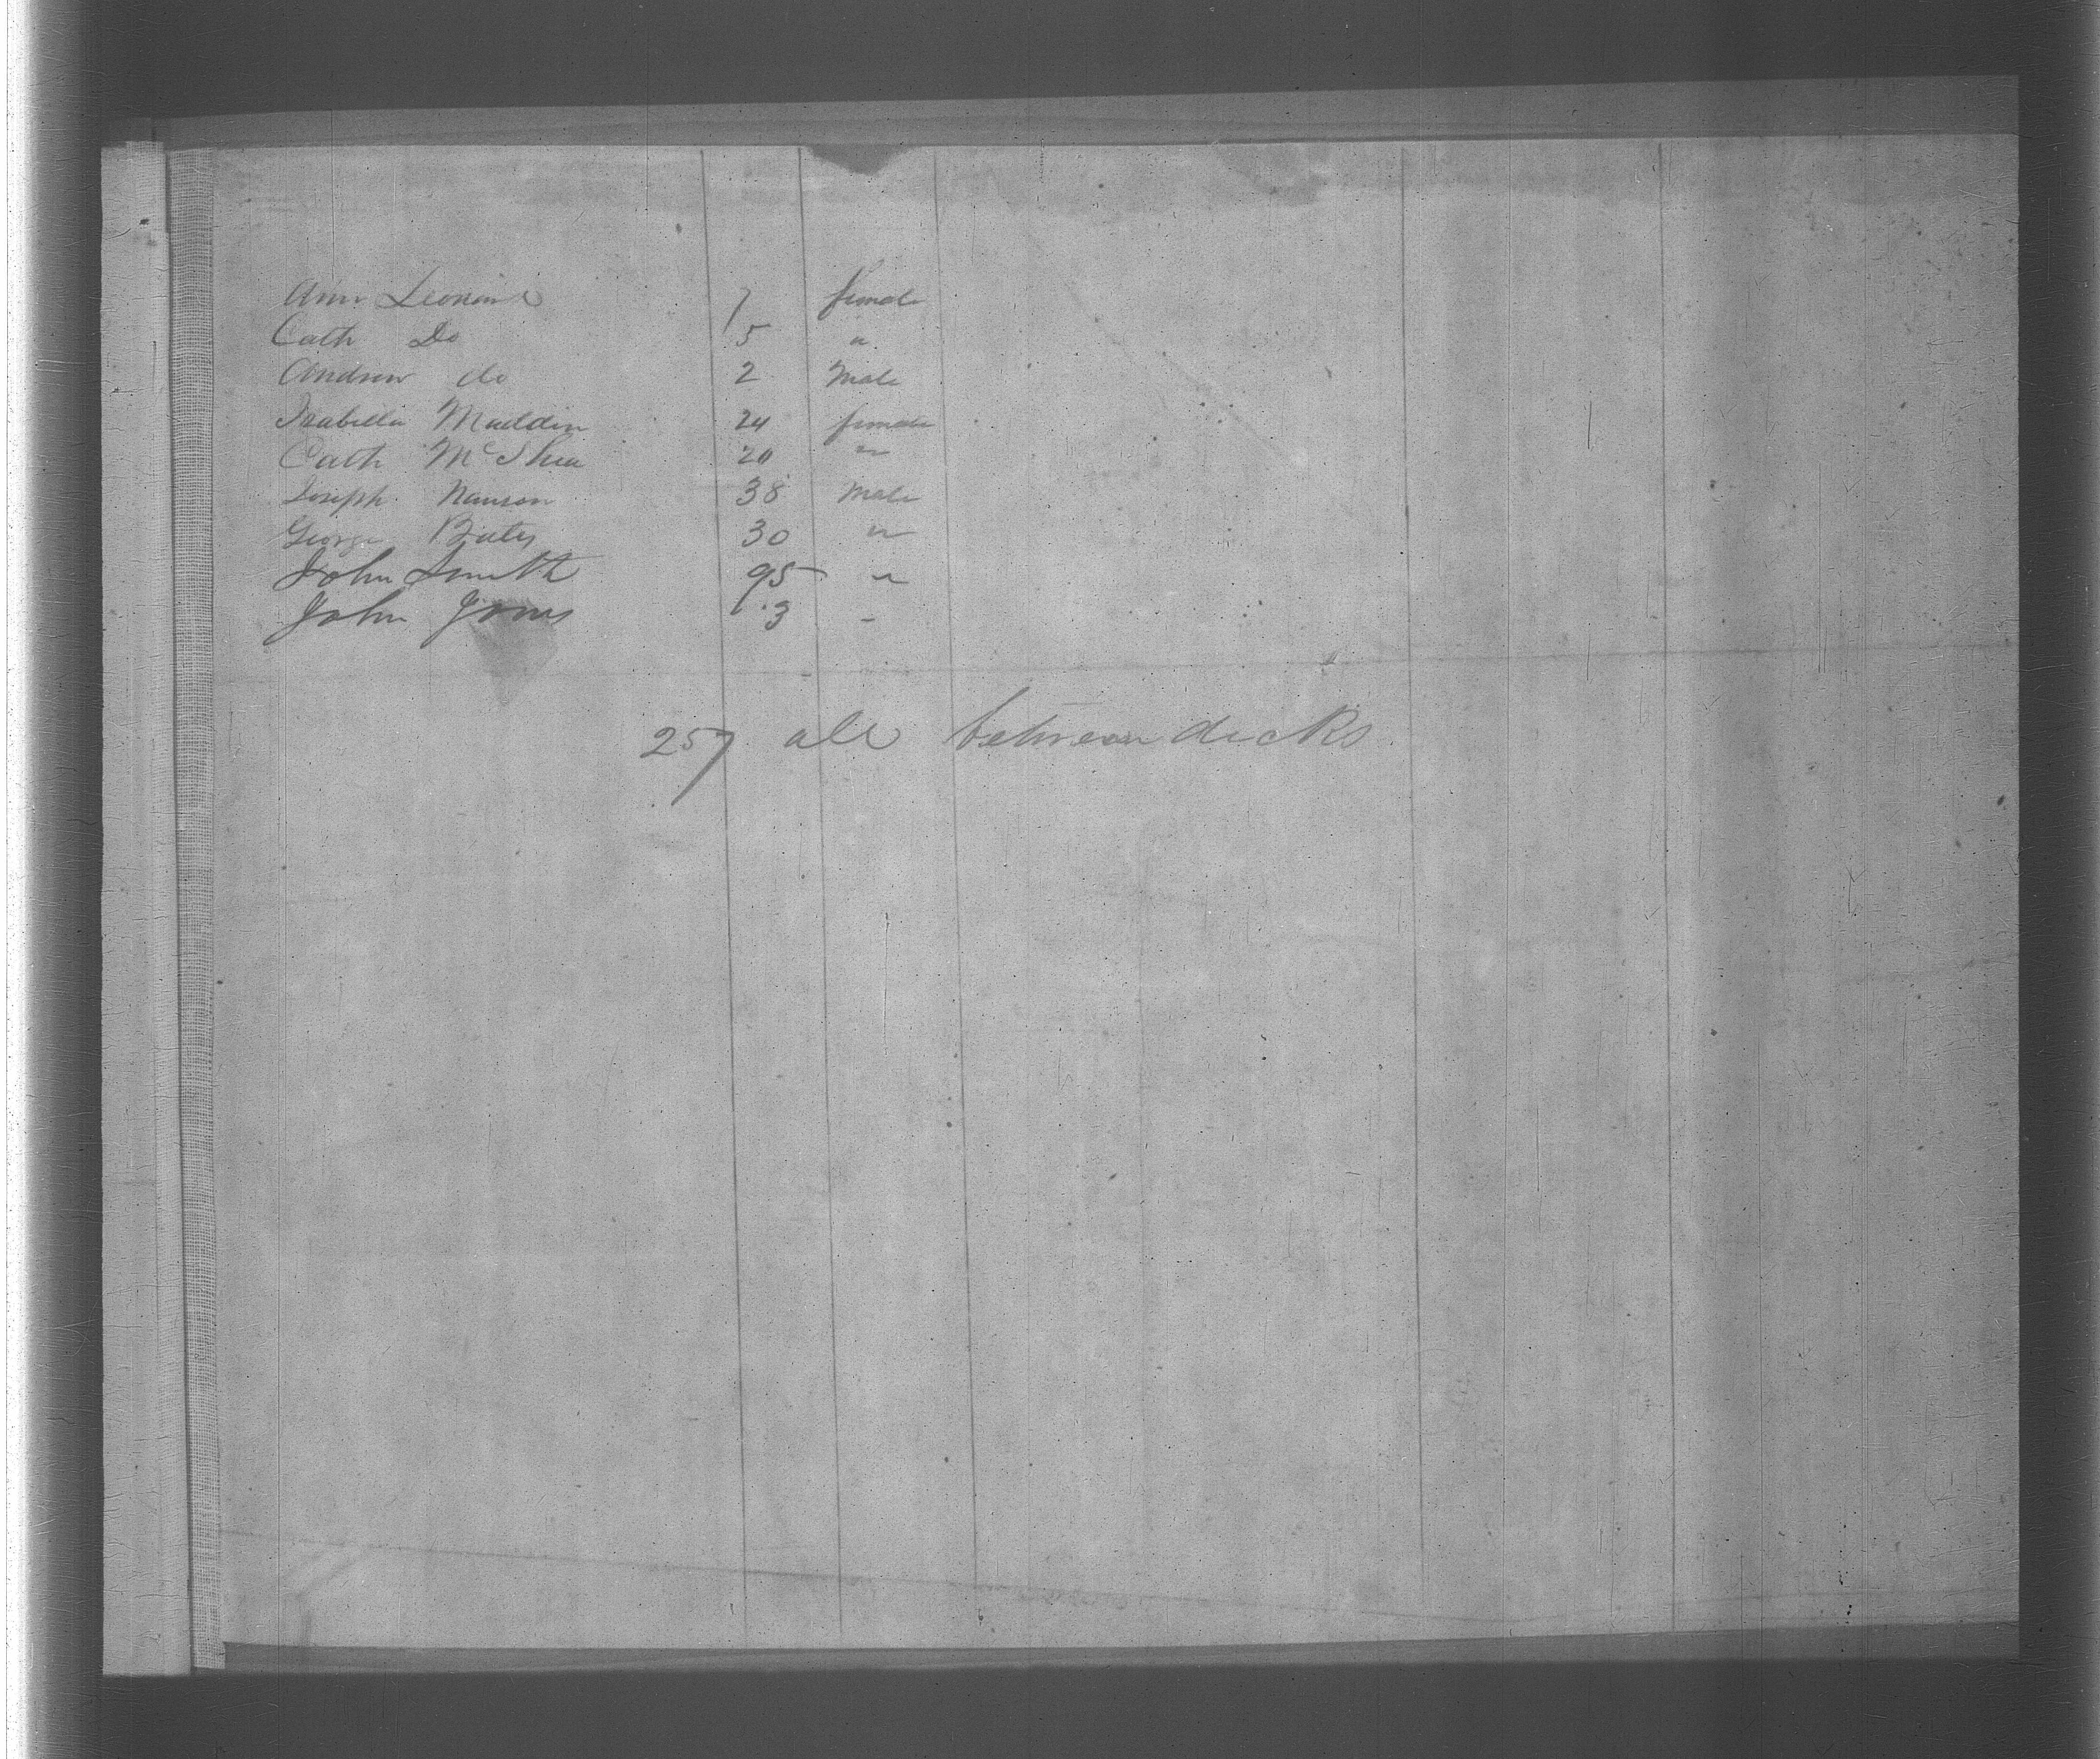 Ann Leonard 7 female
Cath Do 5 "
Andrew do 2 Male
Isabella Maddin 24 female
Cath McShea 20 "
Joseph 38 Male
George Bates 30 "
John Smith 95 "
John Jones 3 "
257 all between decks